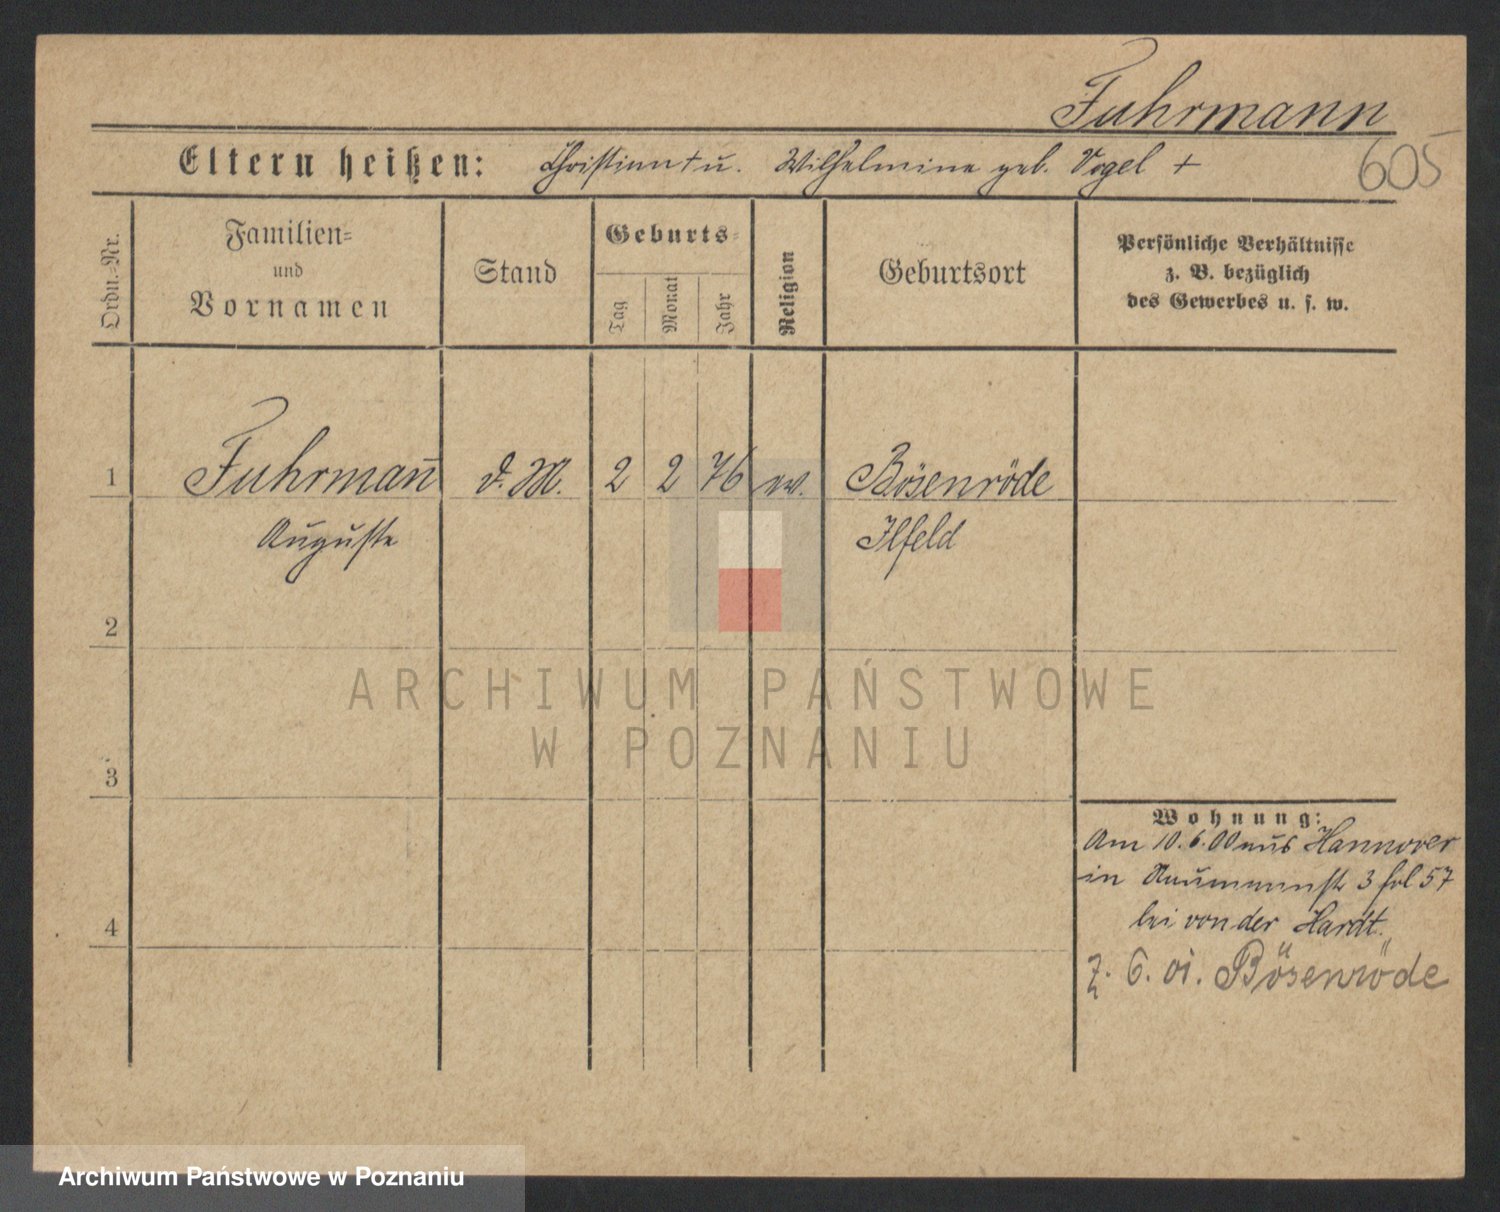 Fuhrmann
605
Eltern heißen: Christian + u. Wilhelmine geb. Vogel +
Ordn.-Nr.
Familien-
und
Vornamen
Stand
Geburts-
Tag
Monat
Jahr
Religion
Geburtsort
Persönliche Verhältnisse
z. B. bezüglich
des Gewerbes u. s. w.
1 Fuhrmann̄ d. M. 2 2 76 ev. Bösenröde
Auguste Ilfeld
2
ARCHIWUM PAŃSTWOWE
W POZNANIU
3
Wohnung:
Am 10.6.00 aus Hannover
in Naumannstr 3 fol 57
bei von der Hardt.
6. 01. Bösenröde
4
Archiwum Państwowe w Poznaniu